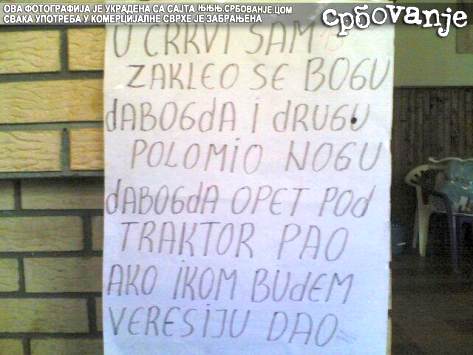 ОВА ФОТОГРАФИЈА ЈЕ УКРАДЕНА СА САЈТА ЊЊЊ.СРБОВАЊЕ.ЦОМ
СВАКА УПОТРЕБА У КОМЕРЦИЈАЛНЕ СВРХЕ ЈЕ ЗАБРАЊЕНА
србовање
U CRKVI SAM
ZAKLEO SE BOGU
dABOGdA I dRUGU
POLOMIO NOGU
dABOGdA OPET POd
TRAKTOR PAO
AKO IKOM BUdEM
VERESIJU DAO